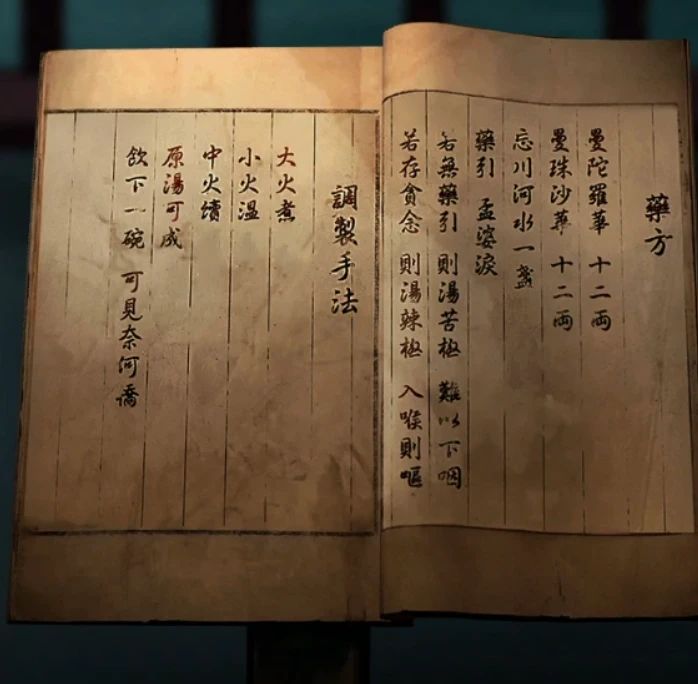 藥方
曼陀羅華 十二両
曼珠沙華 十二両
忘川河水一盞
藥引 孟婆淚
若無藥引 則湯苦極 難以下咽
若存貪念 則湯辣極 入喉則嘔
調製手法
大火煮
小火溫
中火續
原湯可成
飲下一碗 可見奈何僑